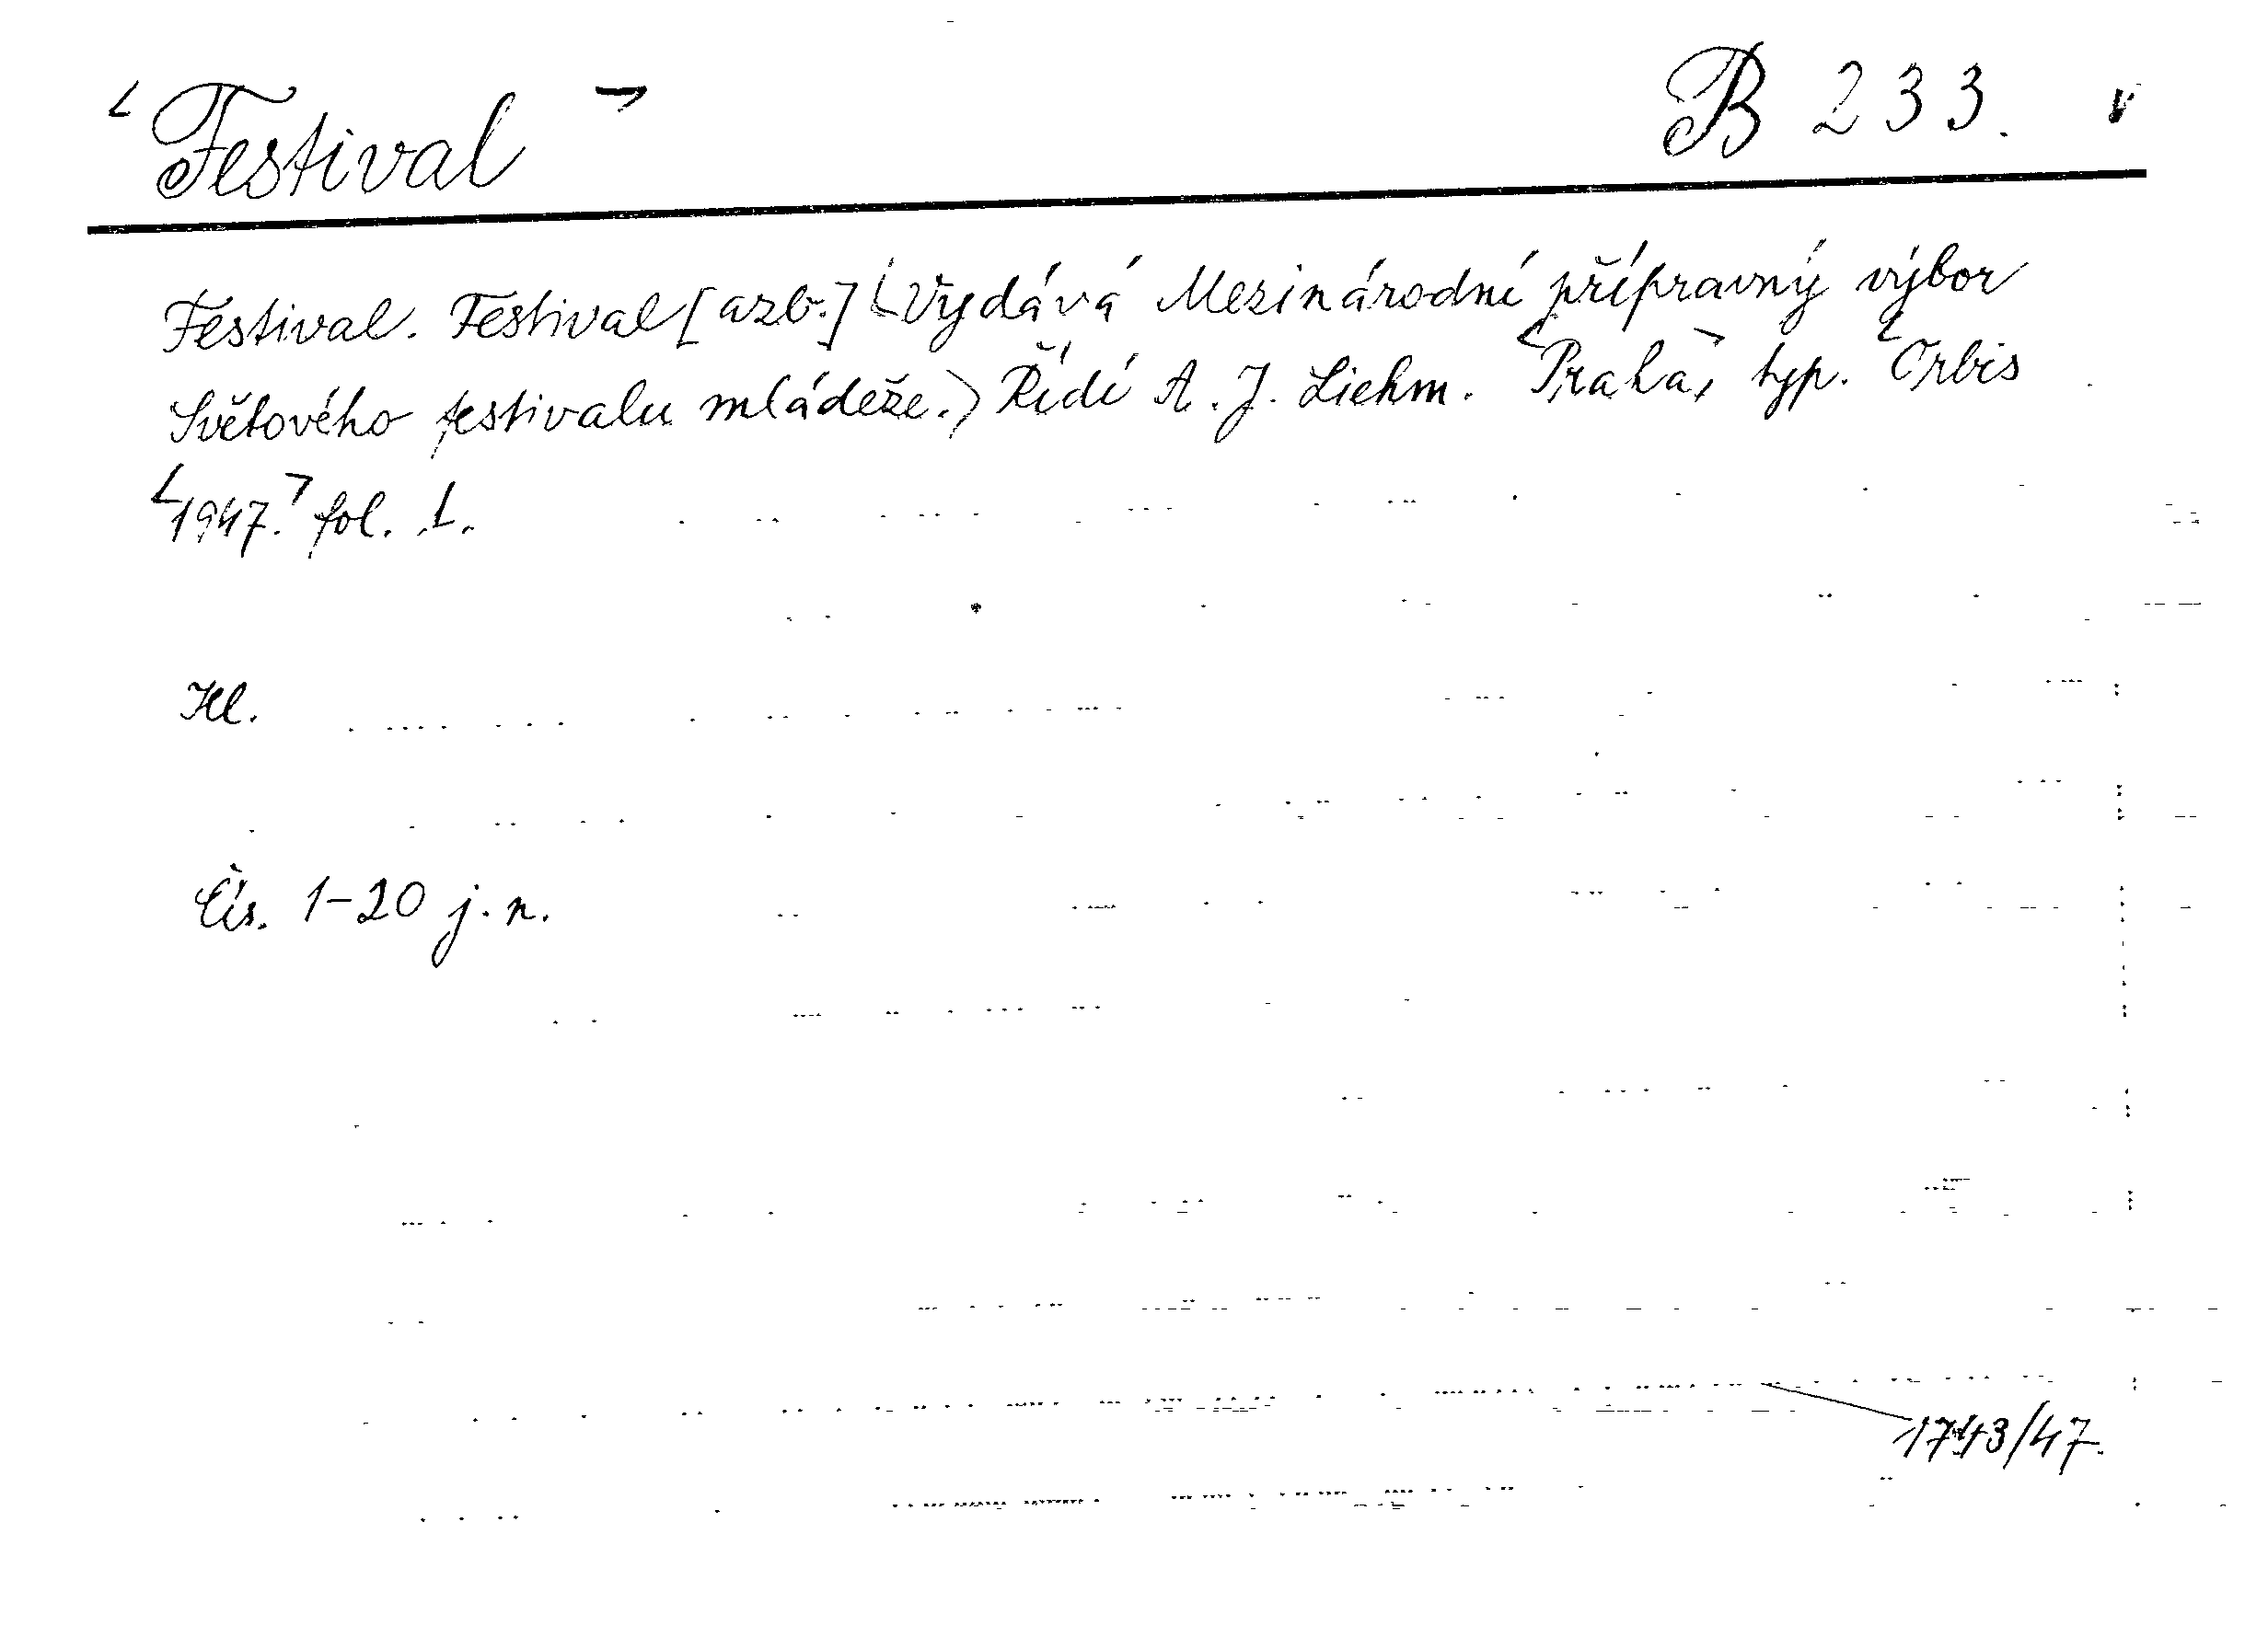 Festival B 233.
Festival. Festival [azb.] (Vydává Mezinárodní přípravný výbor
Světového festivalu mládeže.) Řídí A. J. Liehm. Praha, typ. Orbis
1947. fol. 1.
Kl.
Čís. 1-20 j. n.
1743/47.